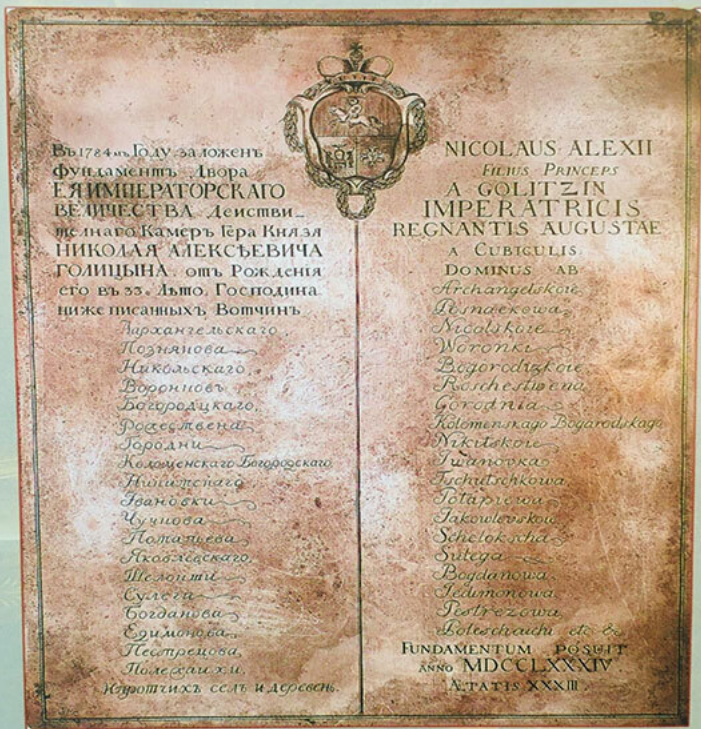 Въ 1784 мъ Году заложенъ
фундаментъ Двора
ЕЯ ИМПЕРАТОРСКАГО
ВЕЛИЧЕСТВА Действи-
телнаго Камеръ Гера Князя
НИКОЛАЯ АЛЕКСѢЕВИЧА
ГОЛИЦЫНА отъ Рожденія
его въ 33е Лѣто. Господина
ниже писанныхъ Вотчинъ
Аархангельскаго
Познякова
Никольскаго
Воронковъ
Богородцкаго,
Рожествена
Городни
Коломенскаго Богородскаго
Никитскаго
Ивановки
Чучкова
Потапьева
Яковлевскаго,
Шелокши
Сулега
Богданова
Едимонова
Пестрецова,
Полехаихи,
и протчихъ селъ и деревень.
NICOLAUS ALEXII
FILIUS PRINCEPS
A GOLITZIN
IMPERATRICIS
REGNANTIS AUGUSTAE
A CUBICULIS
DOMINUS AB
Archangelskoie
Posnaekowa
Nicolskoie
Woronki
Bogorodizkoie
Roschestwena
Gorodnia
Kolomenskago Bogarodskago
Nikitskoie
Iwanovka
Tschutschkowa
Potapiewa
Jakowlevskoie
Schelokscha
Sulega
Bogdanowa
Jedimonowa
Pestrezowa
Poleschaichi etc &
FUNDAMENTUM POSUIT
ANNO MDCCLXXXIV.
ÆTATIS XXXIII.